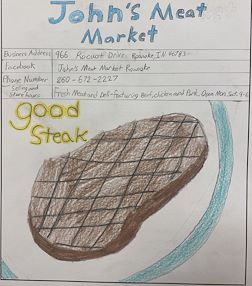 John's Meat
Market
Business Address 966 Locust Drive, Roanoke, IN 46783
Facebook John's Meat Market Roanoke
Phone Number 260-672-2227
Selling and Store hours Fresh Meat and Deli-featuring Beef, chicken and Pork. Open Mon. Sat. 9-6
good
Steak